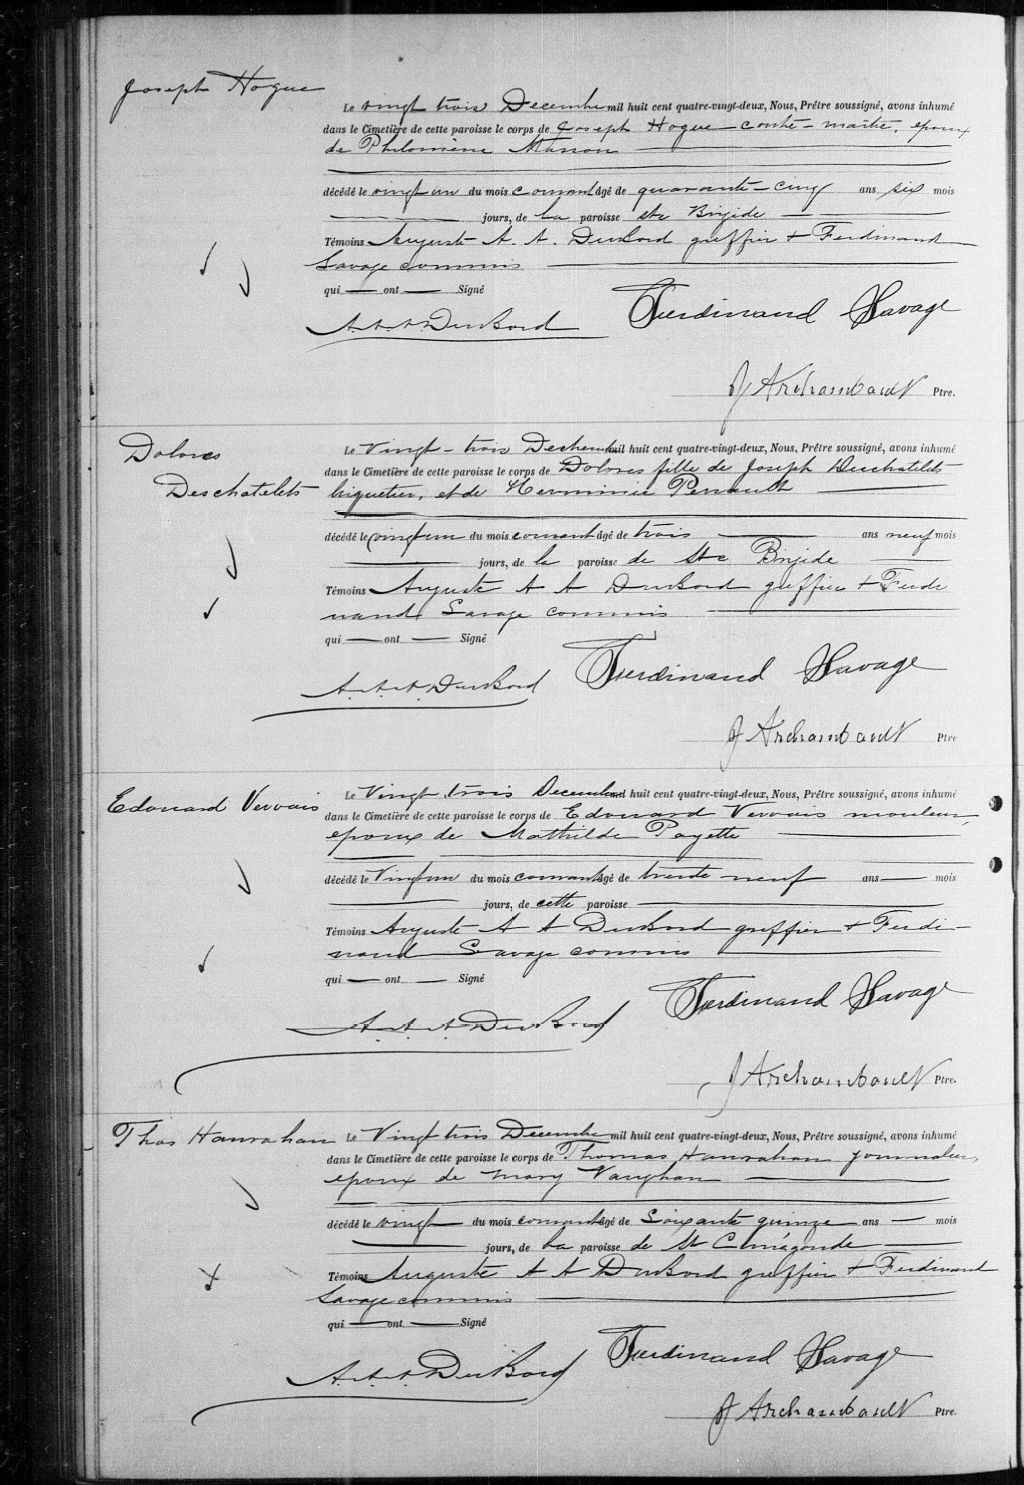 Joseph Hogue
Le vingt trois Decembre mil huit cent quatre-vingt-deux, Nous, Prêtre soussigné, avons inhumé
dans le Cimetière de cette paroisse le corps de Joseph Hogue contre-maitre, epoux
de Philomène Masson
décédé le vingt un du mois courant âgé de quarante-cinq ans six mois
jours, de la paroisse Ste Brigide
Témoins Auguste A. A. DuBord greffier + Ferdinand
Savage commis
qui ont Signé
A.A.A DuBord Ferdinand Savage
J Archambault Ptre.
Dolores
Deschatelets
Le Vingt-trois Decembre mil huit cent quatre-vingt-deux, Nous, Prêtre soussigné, avons inhumé
dans le Cimetière de cette paroisse le corps de Dolores fille de Joseph Deschatelets
briquetier, et de Herminie Perrault
décédé le vingt un du mois courant âgé de trois ans neuf mois
jours, de la paroisse de Ste Brigide
Témoins Auguste A A DuBord greffier + Ferdi
nand Savage commis
qui ont Signé
A.A.A DuBord Ferdinand Savage
J Archambault Ptre
Edouard Vervais
Le Vingt trois Decembre mil huit cent quatre-vingt-deux, Nous, Prêtre soussigné, avons inhumé
dans le Cimetière de cette paroisse le corps de Edouard Vervais mouleur,
epoux de Mathilde Payette
décédé le Vingt un du mois courant âgé de trente neuf ans mois
jours, de cette paroisse
Témoins Auguste A A DuBord greffier + Ferdi-
nand Savage commis
qui ont Signé
A.A.A DuBord Ferdinand Savage
J Archambault Ptre.
Thos Hanrahan
Le Vingt trois Decembre mil huit cent quatre-vingt-deux, Nous, Prêtre soussigné, avons inhumé
dans le Cimetière de cette paroisse le corps de Thomas Hanrahan journalier,
epoux de Mary Vaughan
décédé le vingt du mois courant âgé de Soixante quinze ans mois
jours, de la paroisse de St Cunégonde
Témoins Auguste A A DuBord greffier + Ferdinand
Savage commis
qui ont Signé
A.A.A DuBord Ferdinand Savage
J Archambault Ptre.